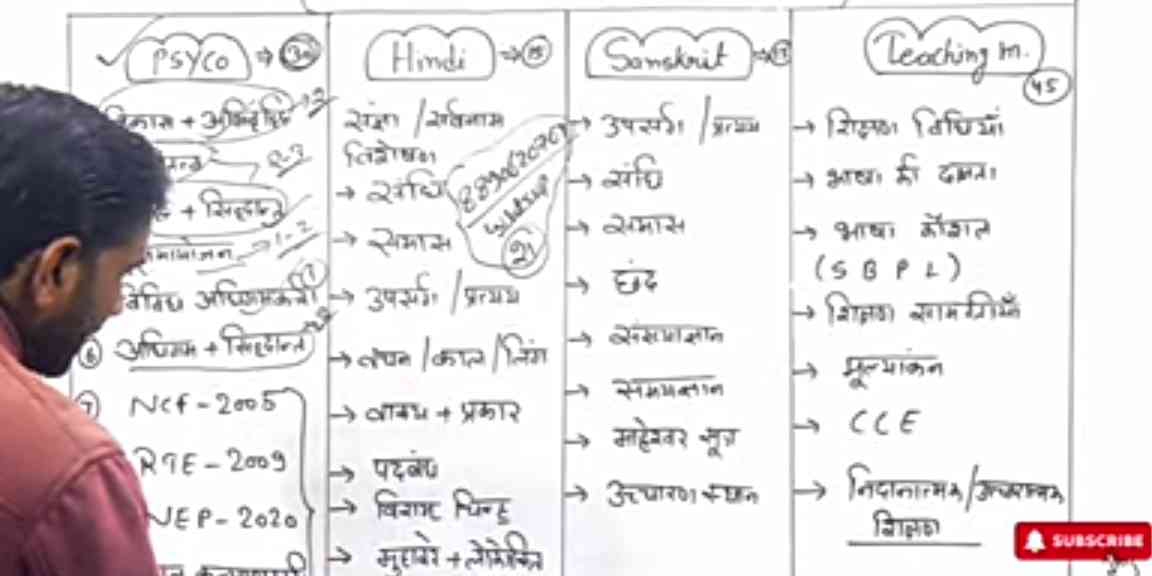 PSYCO ⇒ 30
विकास + अभिवृद्धि → 2
2-3
+ सिद्धान्त
समायोजन → 1-2
विविध अधिगमकर्ता
6 अधिगम + सिद्धान्त
7 NCF - 2005
RTE - 2009
NEP - 2020
Hindi ⇒ 15
संज्ञा / सर्वनाम
विशेषण
→ संधि
→ समास
→ उपसर्ग / प्रत्यय
→ वचन / काल / लिंग
→ वाक्य + प्रकार
→ पदबंध
→ विराम चिन्ह
→ मुहावरे + लोकोक्ति
Sanskrit ⇒
→ उपसर्ग / प्रत्यय
→ संधि
→ समास
→ छंद
→ संख्याज्ञान
→ समयज्ञान
→ माहेश्वर सूत्र
→ उच्चारण स्थान
Teaching m.
45
→ शिक्षण विधियाँ
→ भाषा की दक्षता
→ भाषा कौशल
(S B P L)
→ शिक्षण सामग्रियाँ
→ मूल्यांकन
→ CCE
→ निदानात्मक / उपचारात्मक
शिक्षण
SUBSCRIBE